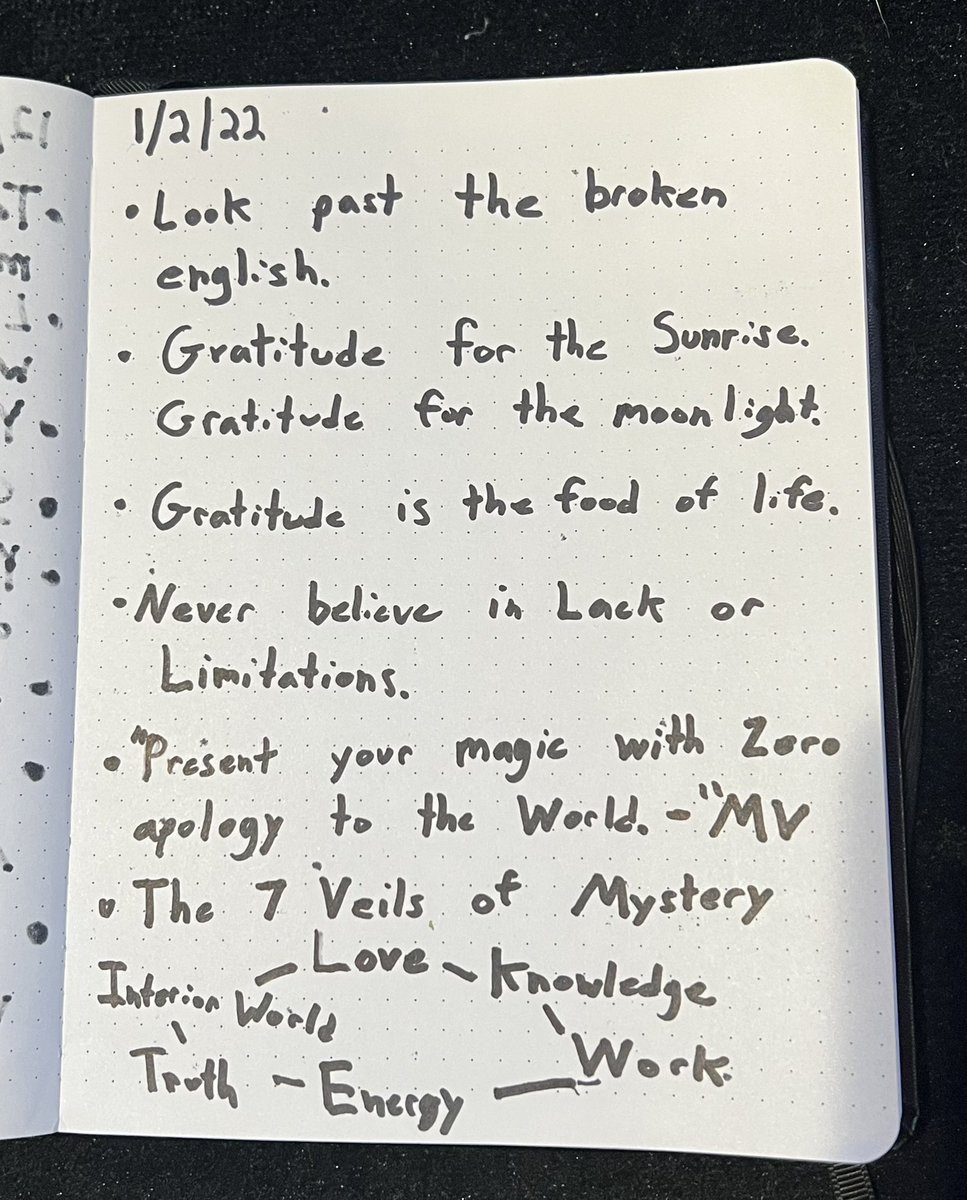 1/2/22
• Look past the broken
english.
• Gratitude for the Sunrise.
Gratitude for the moonlight.
• Gratitude is the food of life.
• Never believe in Lack or
Limitations.
• "Present your magic with Zero
apology to the World. -" MV
• The 7 Veils of Mystery
Interior World - Love - Knowledge
Truth - Energy - Work.